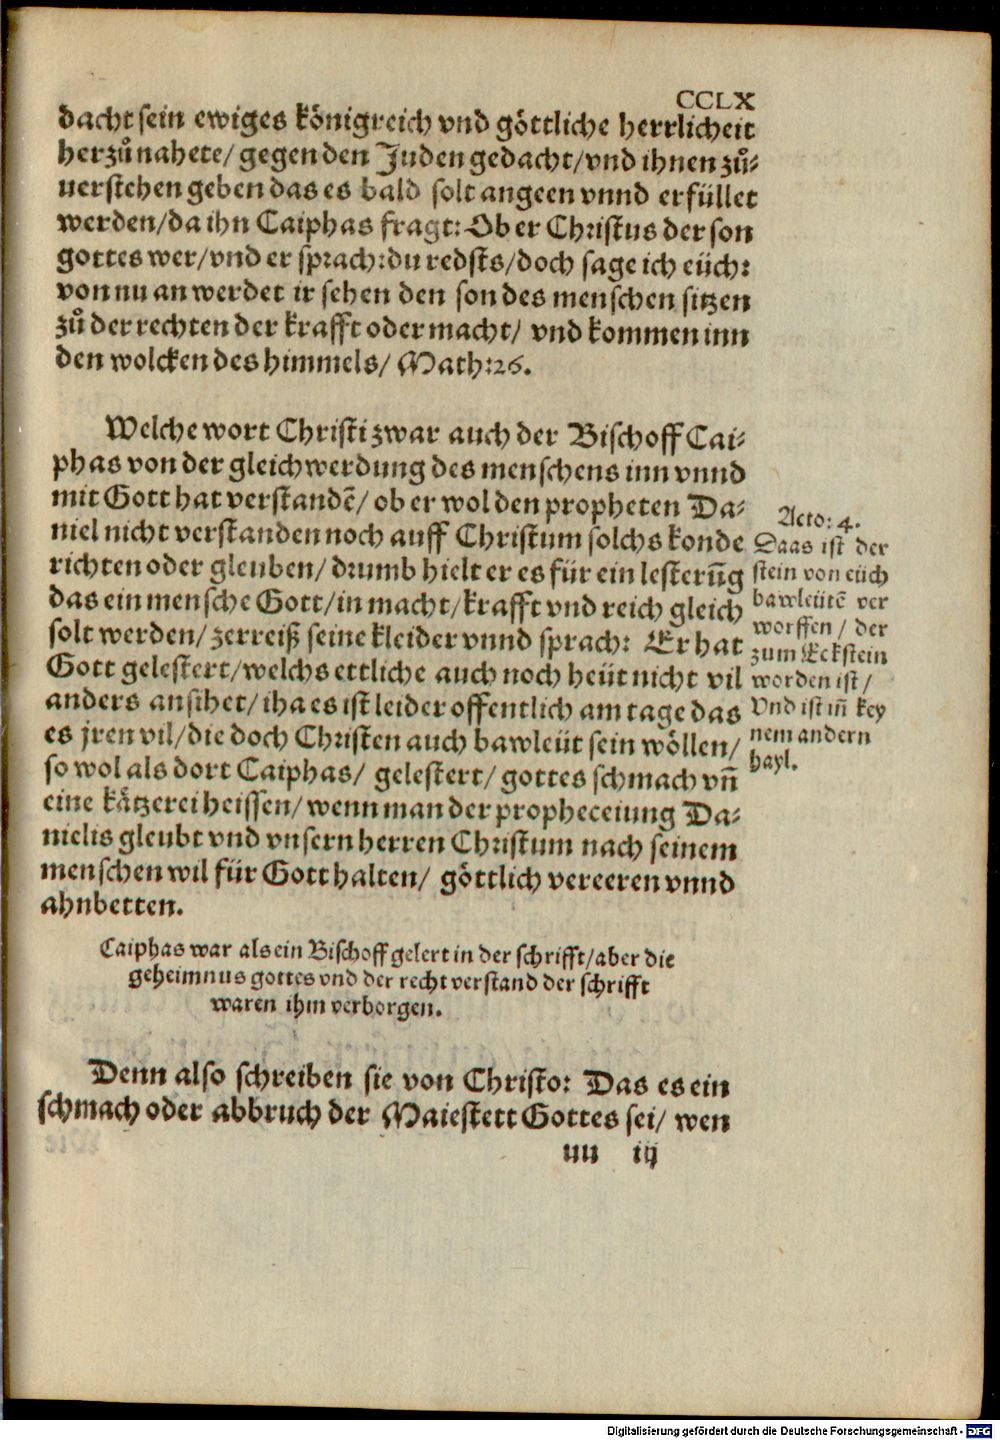 CCLX
dacht sein ewiges königreich vnd göttliche herrlicheit
herzůnahete/ gegen den Juden gedacht/ vnd ihnen zů⸗
uerstehen geben das es bald solt angeen vnnd erfüllet
werden/ da ihn Caiphas fragt: Ob er Christus der son
gottes wer/ vnd er sprach: du redsts/ doch sage ich eüch:
von nu an werdet ir sehen den son des menschen sitzen
zů der rechten der krafft oder macht/ vnd kommen inn
den wolcken des himmels/ Math:26.
Welche wort Christi zwar auch der Bischoff Cai⸗
phas von der gleichwerdung des menschens inn vnnd
mit Gott hat verstandē/ ob er wol den propheten Da⸗
niel nicht verstanden noch auff Christum solchs konde
richten oder gleuben/ drumb hielt er es für ein lesterūg
das ein mensche Gott/ in macht/ krafft vnd reich gleich
solt werden/ zerreiß seine kleider vnnd sprach: Er hat
Gott gelestert/ welchs ettliche auch noch heüt nicht vil
anders ansihet/ iha es ist leider offentlich am tage das
es jren vil/ die doch Christen auch bawleüt sein wöllen/
so wol als dort Caiphas/ gelestert/ gottes schmach vn̄
eine kätzerei heissen/ wenn man der propheceiung Da⸗
nielis gleubt vnd vnsern herren Christum nach seinem
menschen wil für Gott halten/ göttlich vereeren vnnd
ahnbetten.
Acto: 4.
Daas ist der
stein von eüch
bawleütē ver
worffen/ der
zum Eckstein
worden ist/
Vnd ist in̄ key
nem andern
hayl.
Caiphas war als ein Bischoff gelert in der schrifft/ aber die
geheimnus gottes vnd der recht verstand der schrifft
waren ihm verborgen.
Denn also schreiben sie von Christo: Das es ein
schmach oder abbruch der Maiestett Gottes sei/ wen
uu iij
Digitalisierung gefördert durch die Deutsche Forschungsgemeinschaft - DFG